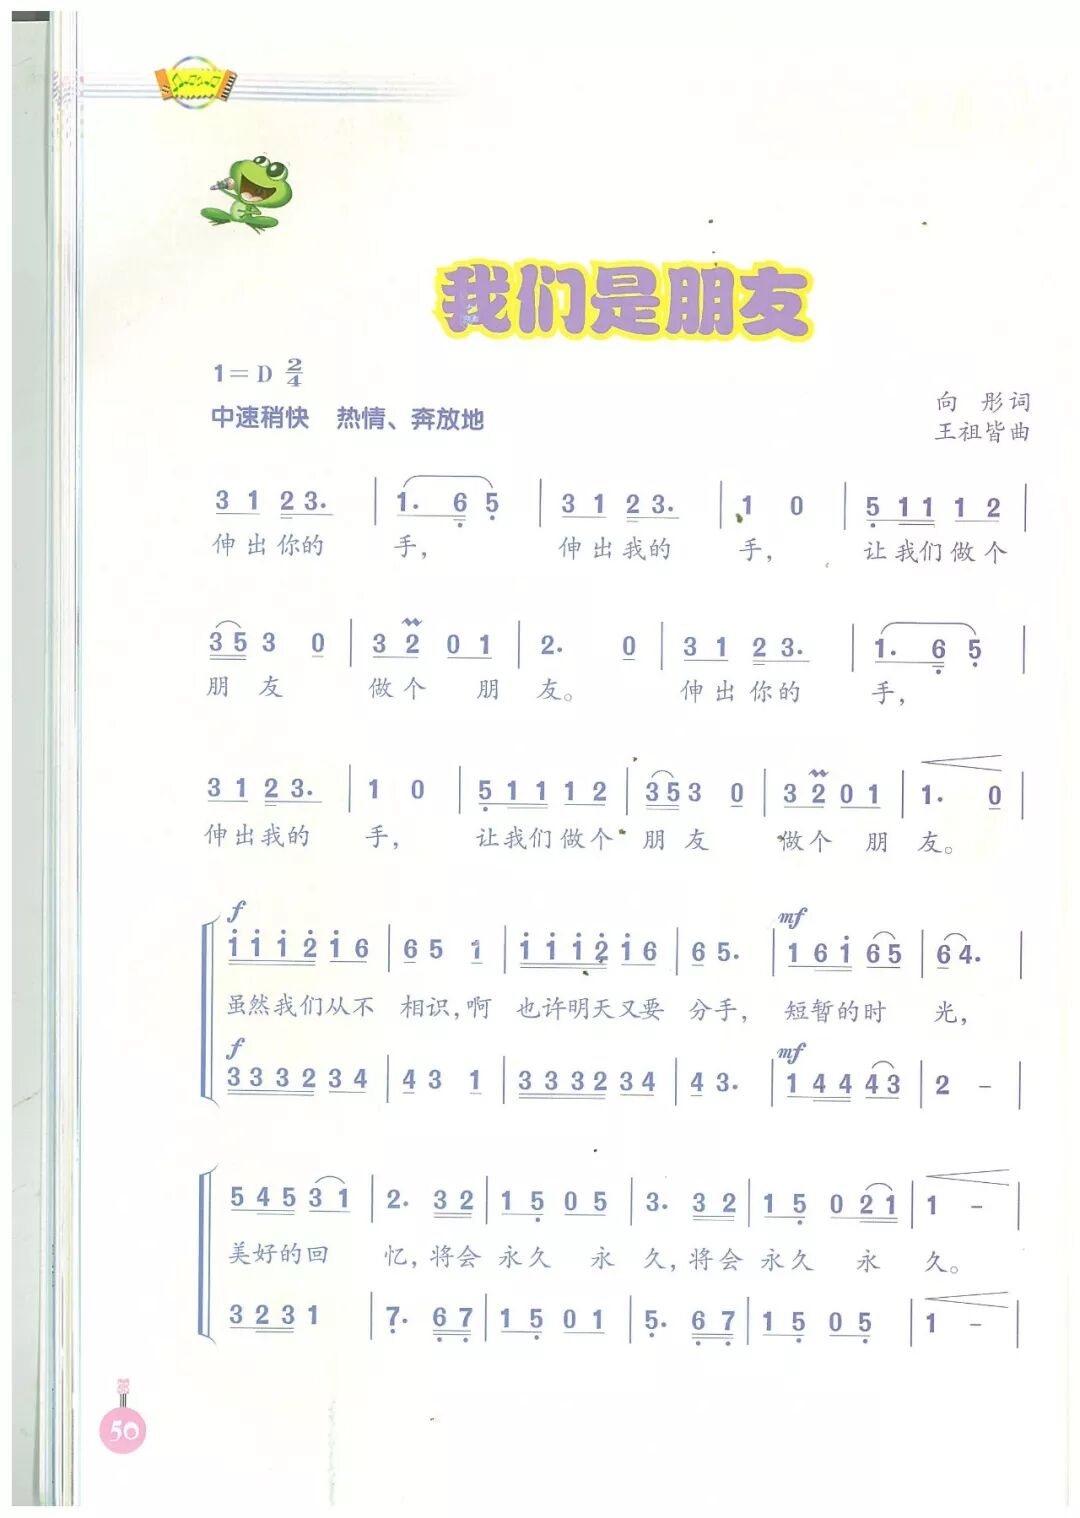 我们是朋友
1=D 2/4
中速稍快 热情、奔放地
向 彤词
王祖皆曲
3 1 2 3. | 1. 6 5 | 3 1 2 3. | 1 0 | 5 1 1 1 2 |
伸出你的 手， 伸出我的 手， 让我们做个
3 5 3 0 | 3 2 0 1 | 2. 0 | 3 1 2 3. | 1. 6 5 |
朋 友 做个 朋 友。 伸出你的 手，
3 1 2 3. | 1 0 | 5 1 1 1 2 | 3 5 3 0 | 3 2 0 1 | 1. 0 |
伸出我的 手， 让我们做个 朋 友 做个 朋 友。
f mf
1 1 1 2 1 6 | 6 5 1 | 1 1 1 2 1 6 | 6 5. | 1 6 1 6 5 | 6 4. |
虽然我们从不 相识，啊 也许明天又要 分手， 短暂的时 光，
f mf
3 3 3 2 3 4 | 4 3 1 | 3 3 3 2 3 4 | 4 3. | 1 4 4 4 3 | 2 - |
5 4 5 3 1 | 2. 3 2 | 1 5 0 5 | 3. 3 2 | 1 5 0 2 1 | 1 - |
美好的回 忆，将会 永久 永 久，将会 永久 永 久。
3 2 3 1 | 7. 6 7 | 1 5 0 1 | 5. 6 7 | 1 5 0 5 | 1 - |
50